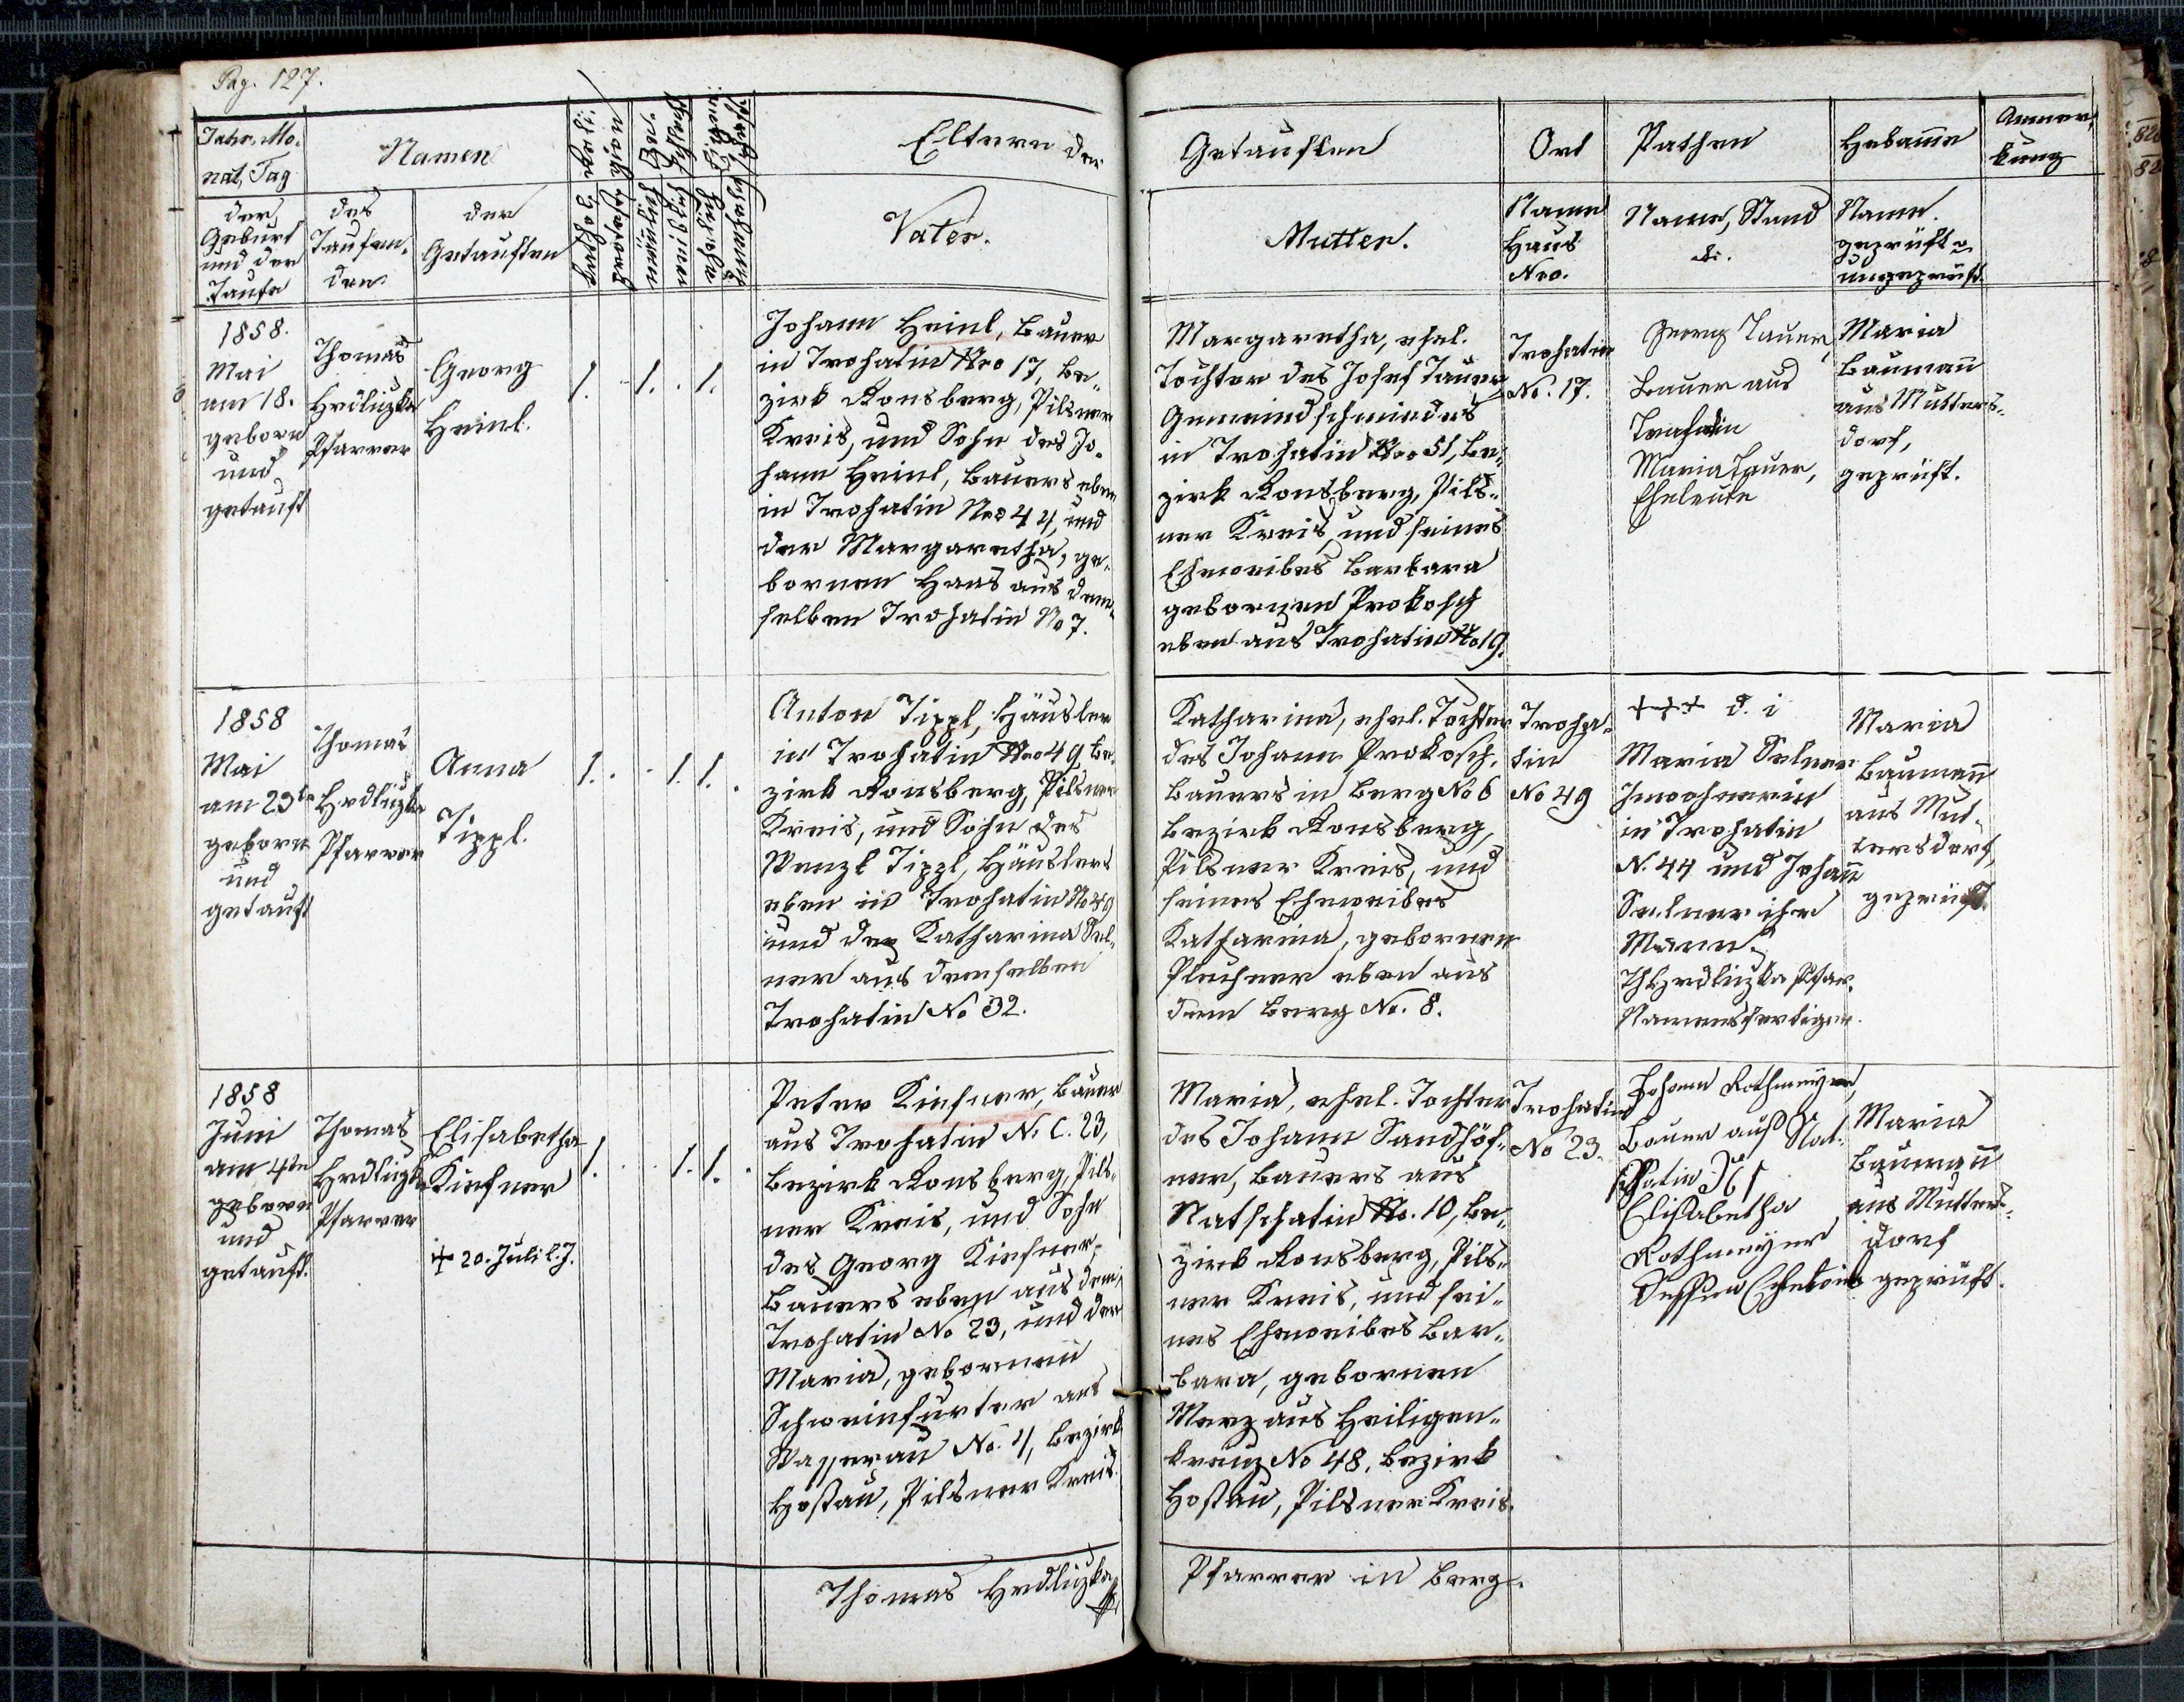 Pag. 127.
Jahr, Mo-
nat, Tag
der
Geburt
und der
Taufe
Namen
des
Taufen-
den
der
Getauften
katholisch
protest.
männl.
weibl.
ehelich
unehelich
Eltern der
Vater.
Getauften
Mutter.
Ort
Name
Haus
Nro.
Pathen
Name, Stand
&.
Hebame
Name.
geprüft o
ungeprüft.
Anmer-
kung
1858.
Mai
am 18.
geborn
und
getauft
Thomas
Hrdliczka
Pfarrer
Georg
Heinl.
1. 1. 1.
Johann Heinl, Bauer
in Trohatin Nro 17, Be-
zirk Ronsberg, Pilsner
Kreis, und Sohn des Jo-
hann Heinl, Bauers eben
in Trohatin Nro 44, und
der Margaretha, ge-
bornen Haas aus dem-
selben Trohatin No 7.
Margaretha, ehel.
Tochter des Josef Tauer
Gemeindschmiedes
in Trohatin Nro 51, Be-
zirk Ronsberg, Pils-
ner Kreis, und seines
Eheweibes Barbara
gebornen Prokosch
eben aus Trohatin No 19.
Trohatin
No. 17.
Georg Tauer,
Bauer aus
Trohatin
Maria Tauer,
Eheleute
Maria
Baumañ
aus Mutters-
dorf,
geprüft.
1858
Mai
am 23t
geborn
und
getauft
Thomas
Hrdliczka
Pfarrer
Anna
Tippl.
1. 1. 1.
Anton Tippl, Häusler
in Trohatin Nro 49, Be-
zirk Ronsberg, Pilsner
Kreis, und Sohn des
Wenzl Tippl, Häuslers
eben in Trohatin No 49
und der Katharina Sel-
ner aus demselben
Trohatin No 32.
Katharina, ehel. Tochter
des Johann Prokosch,
Bauers in Berg No 6
Bezirk Ronsberg,
Pilsner Kreis, und
seines Eheweibes
Katharina, gebornen
Pluchner eben aus
dem Berg No. 8.
Troha-
tin
No 49
+++ d. i
Maria Selner
Inwohnerin
in Trohatin
N. 44 und Johañ
Selner ihr
Mann.
Th Hrdliczka Pfar.
Namensfertiger.
Maria
Baumañ
aus Mut-
tersdorf,
geprüft.
1858
Juni
am 4tn
geborn
und
getauft.
Thomas
Hrdliczka
Pfarrer
Elisabetha
Kiefner
+ 20. Juli l. J.
1. 1. 1.
Peter Kiefner, Bauer
aus Trohatin N. C. 23,
Bezirk Ronsberg, Pils-
ner Kreis, und Sohn
des Georg Kiefner,
Bauers eben aus dem
Trohatin No 23, und der
Maria, gebornen
Schweinfurter aus
Wasserau No. 4, Bezirk
Hostau, Pilsner Kreis.
Maria, ehel. Tochter
des Johann Sandhöf-
ner, Bauers aus
Natschatin No. 10, Be-
zirk Ronsberg, Pils-
ner Kreis, und sei-
nes Eheweibes Bar-
bara, gebornen
Merz aus Heiligen-
kreuz No 48, Bezirk
Hostau, Pilsner Kreis.
Trohatin
No 23.
Johann Rothmeyer,
Bauer aus Nat-
schatin No 1
Elisabetha
Rothmeyer
Dessen Eheweib
Maria
Baumañ
aus Mutters-
dorf
geprüft.
Thomas Hrdliczka
Pfarrer in Berg.